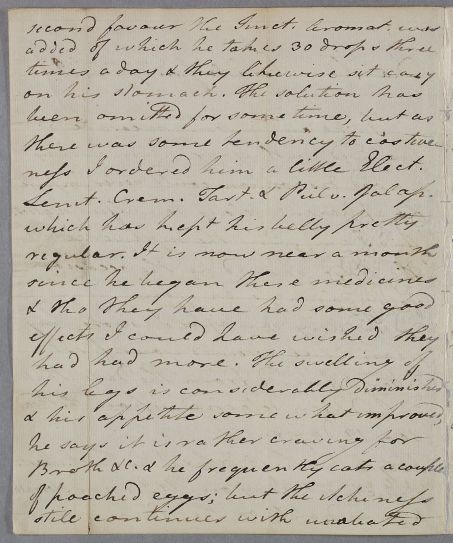 second favour the Tinct. Aromat. was
added of which he takes 30 drops three
times a day & they likewise sit easy
on his stomach. The solution has
been omitted for some time, but as
there was some tendency to costive
ness I ordered him a little Elect.
Lenit. Crem. Tart. & Pulv. Jalap.
which has kept his belly pretty
regular. It is now near a month
since he began these medicines
& tho they have had some good
effects I could have wished they
had had more. The swelling of
his legs is considerably diminished
& his appetite somewhat improved,
he says it is rather craving for
Broth &c. & he frequently eats a couple
of poached eggs; but the Itchiness
stile continues with unabated